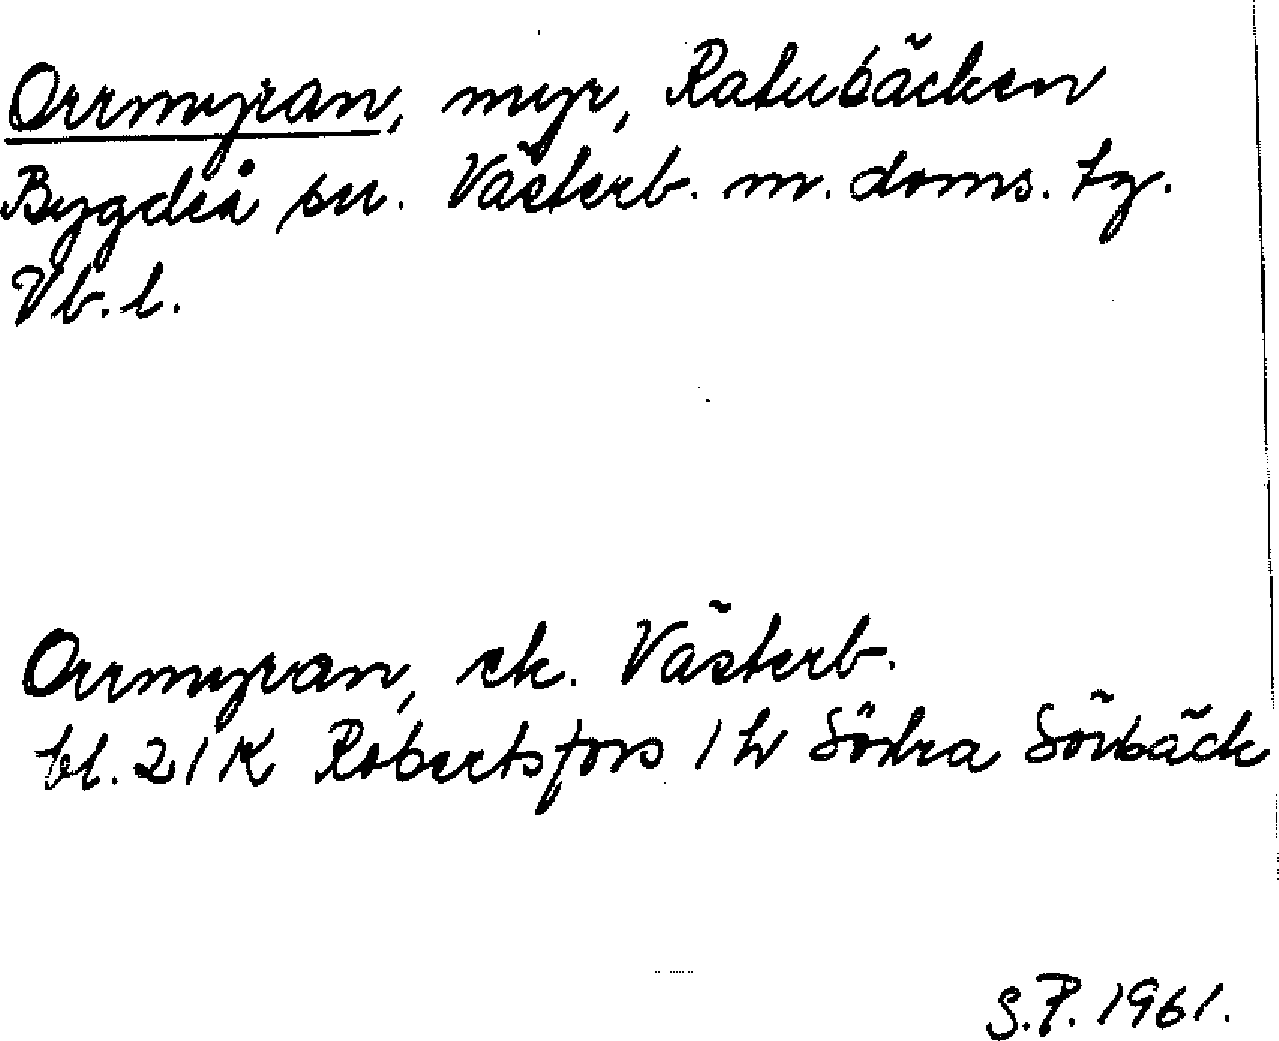 Orrmyran, myr, Ratubäcken
Bygdeå sn. Västerb. m. doms. tg.
Vb. l.
Orrmyran, ek. Västerb.
bl. 21 K Robertsfors 1 h Södra Sörbäck
S.P. 1961.